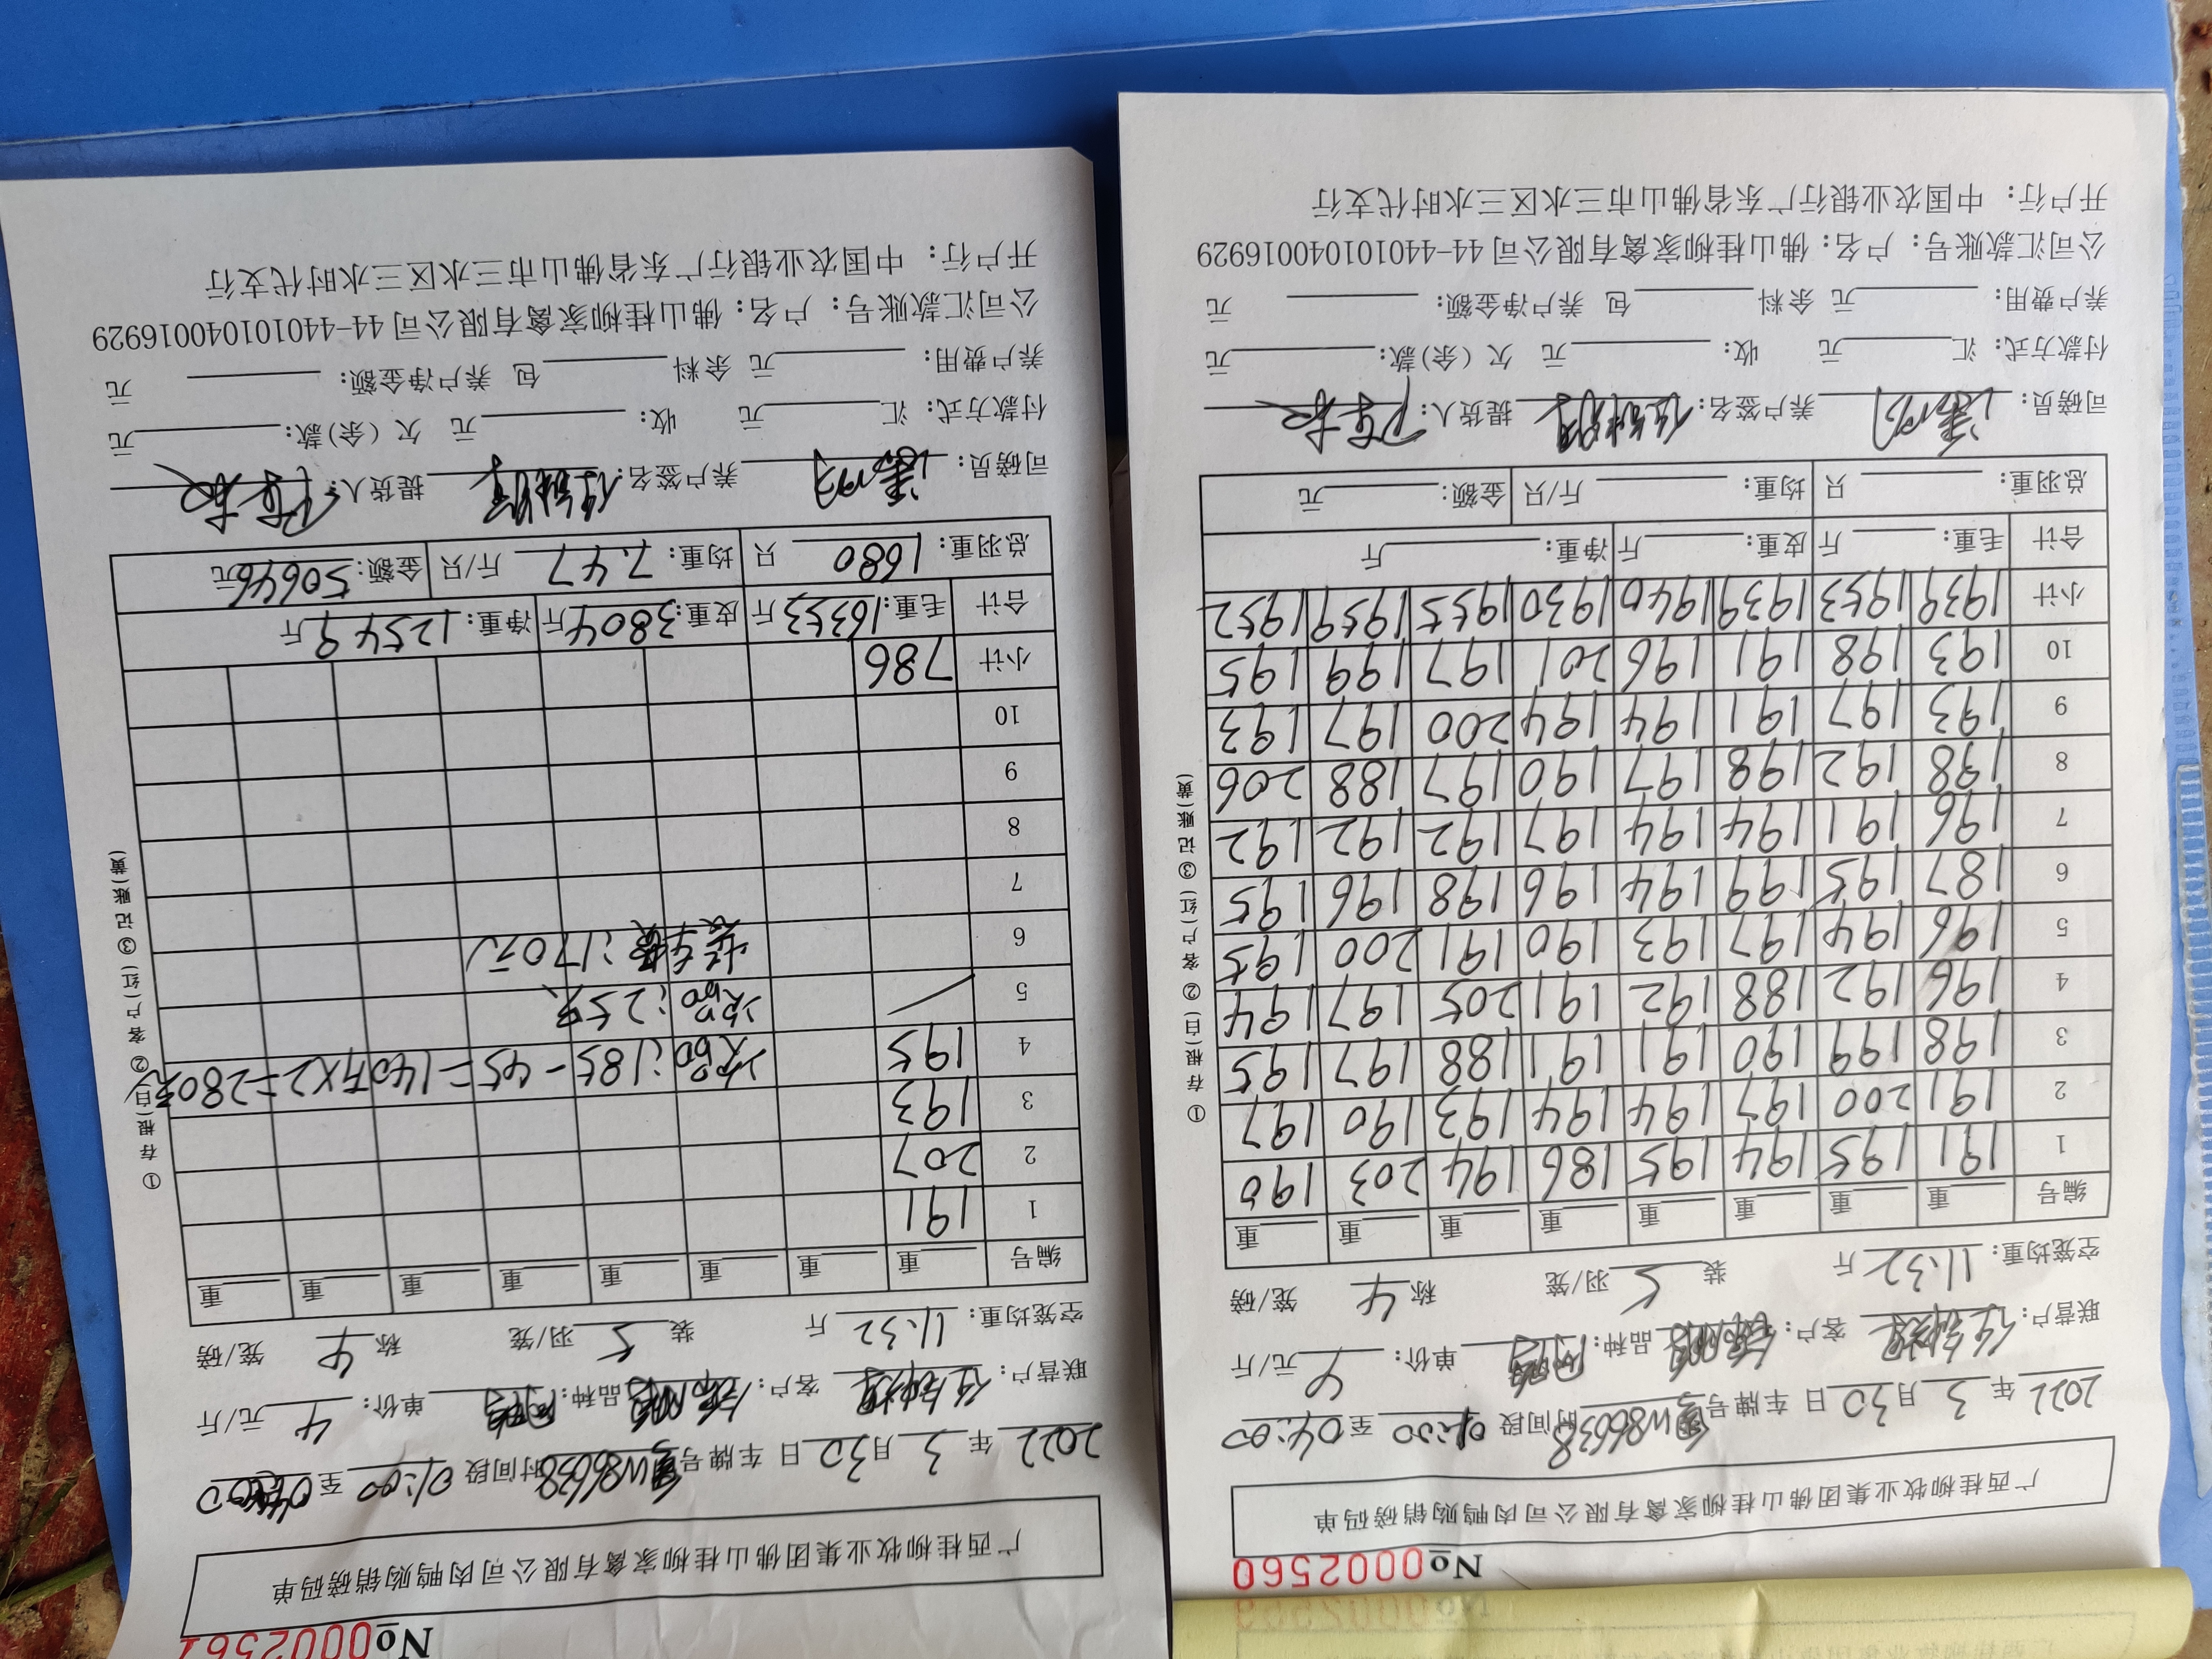 No 0002560
广西桂柳牧业集团佛山桂柳家禽有限公司肉鸭购销磅码单
2022 年 3 月 30 日 车牌号 W86638 时间段 01:00 至 04:00
联营户: 客户: 品种: 单价: 4 元/斤
空笼均重: 11.32 斤 装 5 羽/笼 称 4 笼/磅
编号 重 重 重 重 重 重 重 重
1 191 195 194 195 186 194 203 190
2 191 200 197 194 194 193 190 197
3 198 199 190 191 191 188 197 195
4 196 192 188 192 191 205 197 194
5 196 194 197 193 190 191 200 195
6 187 195 199 194 196 198 196 195
7 196 191 194 194 197 192 192 192
8 198 192 198 197 190 197 188 206
9 193 197 191 194 194 200 197 193
10 193 198 191 196 201 197 199 195
小计 1939 1953 1939 1940 1930 1955 1959 1952
合计 毛重: 斤 皮重: 斤 净重: 斤
总羽重: 只 均重: 斤/只 金额: 元
司磅员: 养户签名: 提货人:
付款方式: 汇 元 收: 元 欠(余)款: 元
养户费用: 元 余料 包 养户净金额: 元
公司汇款账号: 户名: 佛山桂柳家禽有限公司 44-440101040016929
开户行: 中国农业银行广东省佛山市三水区三水时代支行
① 存根(白) ② 客户(红) ③ 记账(黄)
No 0002561
广西桂柳牧业集团佛山桂柳家禽有限公司肉鸭购销磅码单
2022 年 3 月 30 日 车牌号 W86638 时间段 01:00 至
联营户: 客户: 品种: 单价: 4 元/斤
空笼均重: 11.32 斤 装 5 羽/笼 称 4 笼/磅
编号 重 重 重 重 重 重 重 重
1 191
2 207
3 193
4 195 次品:185-45=140斤×2=280元
5 次品:25只
6 装车费:170元
7
8
9
10
小计 786
合计 毛重: 16353 斤 皮重: 3804 斤 净重: 12549 斤
总羽重: 1680 只 均重: 7.47 斤/只 金额: 50646 元
司磅员: 养户签名: 提货人:
付款方式: 汇 元 收: 元 欠(余)款: 元
养户费用: 元 余料 包 养户净金额: 元
公司汇款账号: 户名: 佛山桂柳家禽有限公司 44-440101040016929
开户行: 中国农业银行广东省佛山市三水区三水时代支行
① 存根(白) ② 客户(红) ③ 记账(黄)